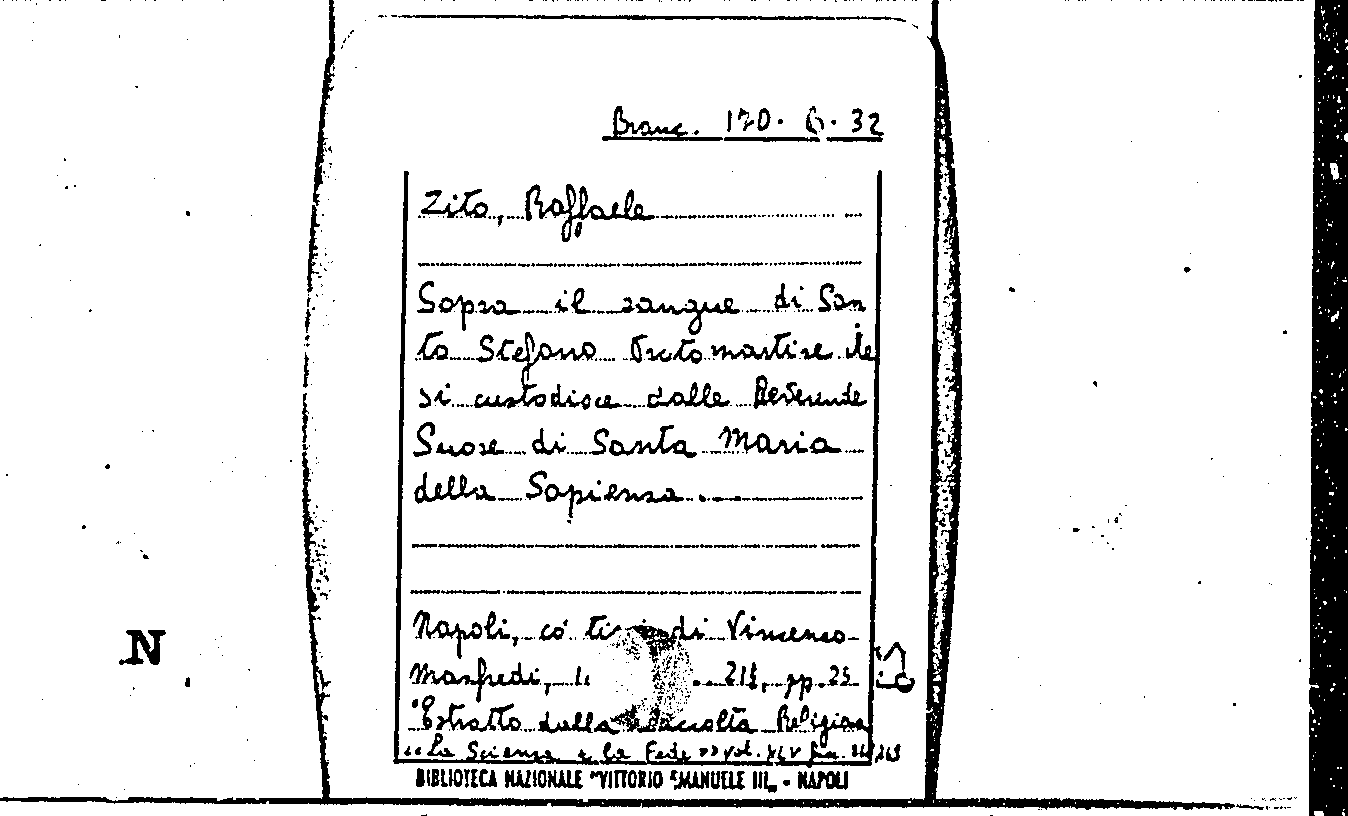 Branc. 170. 6. 32
Zito, Raffaele
Sopra il sangue di San
to Stefano Protomartire che
si custodisce dalle Reverende
Suore di Santa Maria
della Sapienza ...
Napoli, co' di Vincenzo
Manfredi, pp. 25
Estratto dalla Raccolta Religiosa
"La Scienza e la Fede" vol.
N
BIBLIOTECA NAZIONALE "VITTORIO EMANUELE III„ - NAPOLI